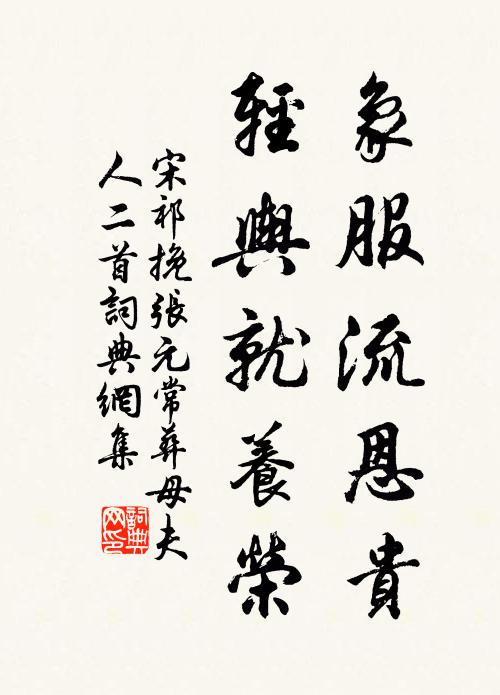 象服流恩貴
輕輿就養榮
宋祁挽張元常葬母夫
人二首詞典網集
詞典
网印